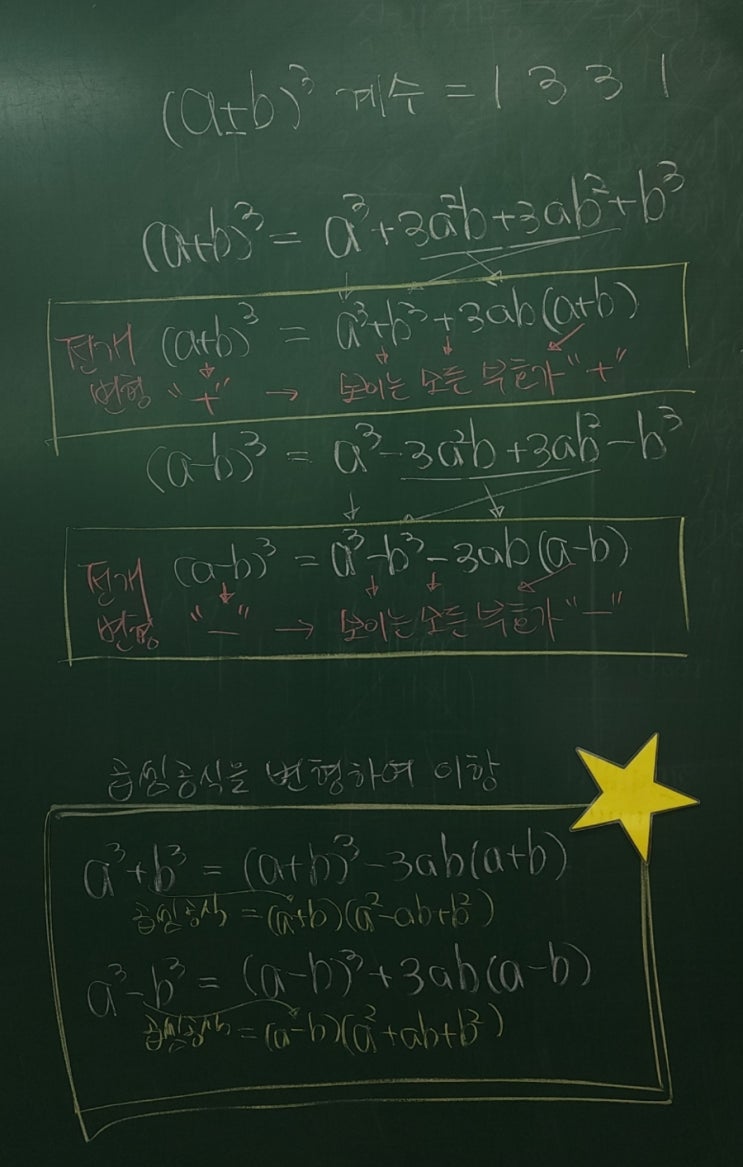 (a±b)³ 계수 = 1 3 3 1
(a+b)³ = a³+3a²b+3ab²+b³
전개 (a+b)³ = a³+b³+3ab(a+b)
변형 "+" → 보이는 모든 부호가 "+"
(a-b)³ = a³-3a²b+3ab²-b³
전개 (a-b)³ = a³-b³-3ab(a-b)
변형 "-" → 보이는 모든 부호가 "-"
곱셈공식을 변형하여 이항
a³+b³ = (a+b)³-3ab(a+b)
곱셈공식 = (a+b)(a²-ab+b²)
a³-b³ = (a-b)³+3ab(a-b)
곱셈공식 = (a-b)(a²+ab+b²)